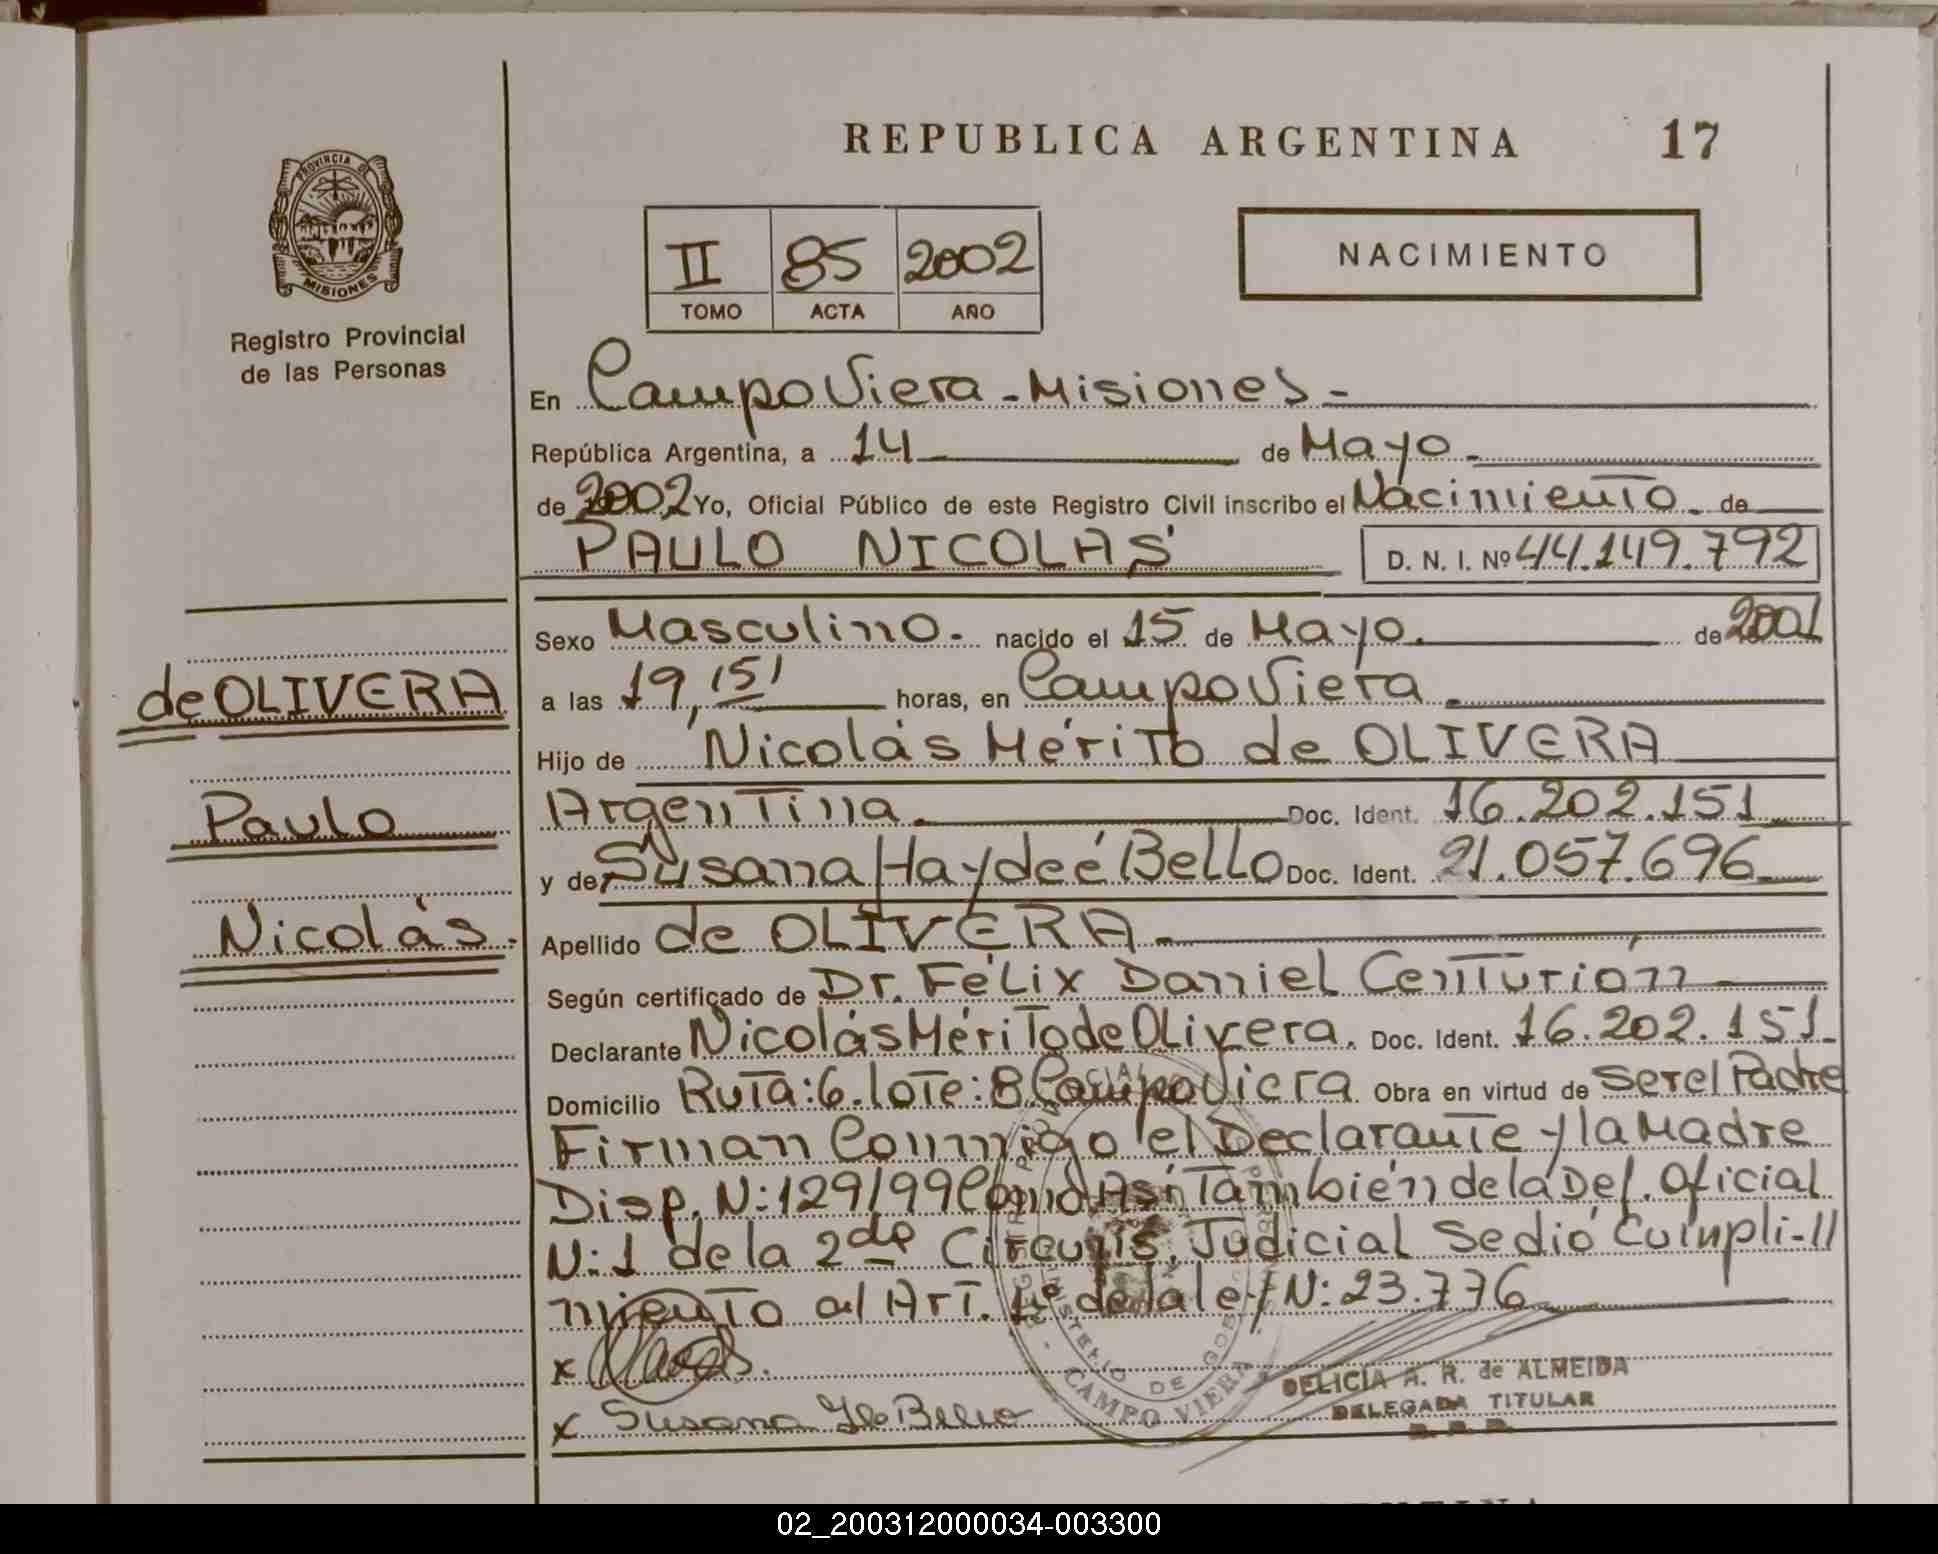 REPUBLICA ARGENTINA 17
PROVINCIA DE
MISIONES
Registro Provincial
de las Personas
II 85 2002
TOMO ACTA AÑO
NACIMIENTO
En Campo Viera - Misiones -
República Argentina, a 14 de Mayo
de 2002 Yo, Oficial Público de este Registro Civil inscribo el Nacimiento de
PAULO NICOLAS D. N. I. Nº 44.149.792
Sexo Masculino. nacido el 15 de Mayo. de 2001
a las 19,15' horas, en Campo Viera
Hijo de Nicolás Mérito de OLIVERA
Argentina. Doc. Ident. 16.202.151
y de Susana Haydeé Bello Doc. Ident. 21.057.696
Apellido de OLIVERA
Según certificado de Dr. Félix Daniel Centurión
Declarante Nicolás Mérito de Olivera. Doc. Ident. 16.202.151
Domicilio Ruta:6. lote:8 Campo Viera Obra en virtud de ser el Padre
Firman Conmigo el Declarante y la Madre
Disp. N:129/99 Como Así También de la Def. Oficial
N:1 de la 2da Circuns. Judicial Se dió Cumpli-//
miento al Art. 1º de la ley N: 23.776
de OLIVERA
Paulo
Nicolás.
x
x Susana H de Bello
MINISTERIO DE GOB
CAMPO VIERA
DELICIA A. R. de ALMEIDA
DELEGADA TITULAR
02_200312000034-003300